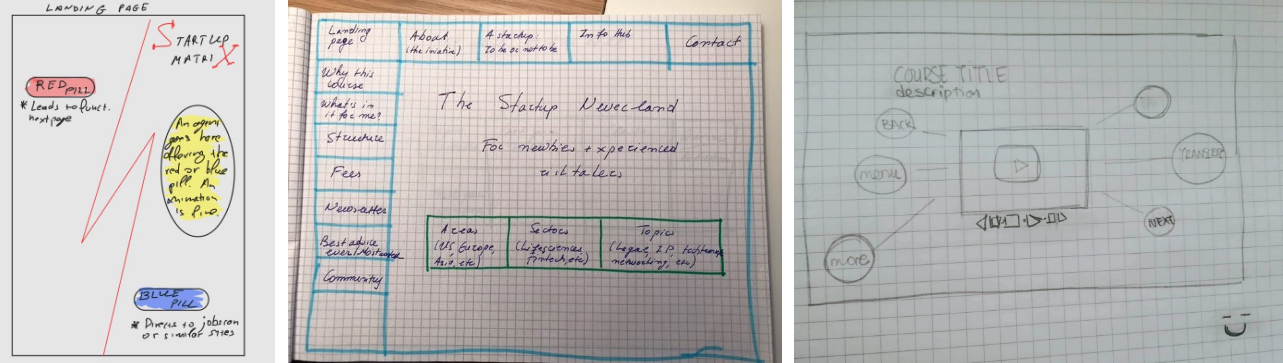 LANDING PAGE
STARTUP
MATRIX
RED PILL
* Leads to funct.
next page
An agent
goes here
offering the
red or blue
pill. An
animation
is fine.
BLUE
PILL
* Directs to jobscan
or similar sites
Landing
page
About
(the iniative)
A stactup:
To be or not to be
Info Hub
Contact
Why this
course
What's in
it for me?
Structure
Fees
Newsletter
Best advice
ever/
Community
The Startup Neverland
For newbies + xperienced
risk takers
Areas
(US, Europe,
Asia, etc)
Sectors
(Lifesciences,
Fintech, etc)
Topics
(Legal, IP,
networking, etc)
COURSE TITLE
description
BACK
menu
more
TRANSCRIP
NEXT